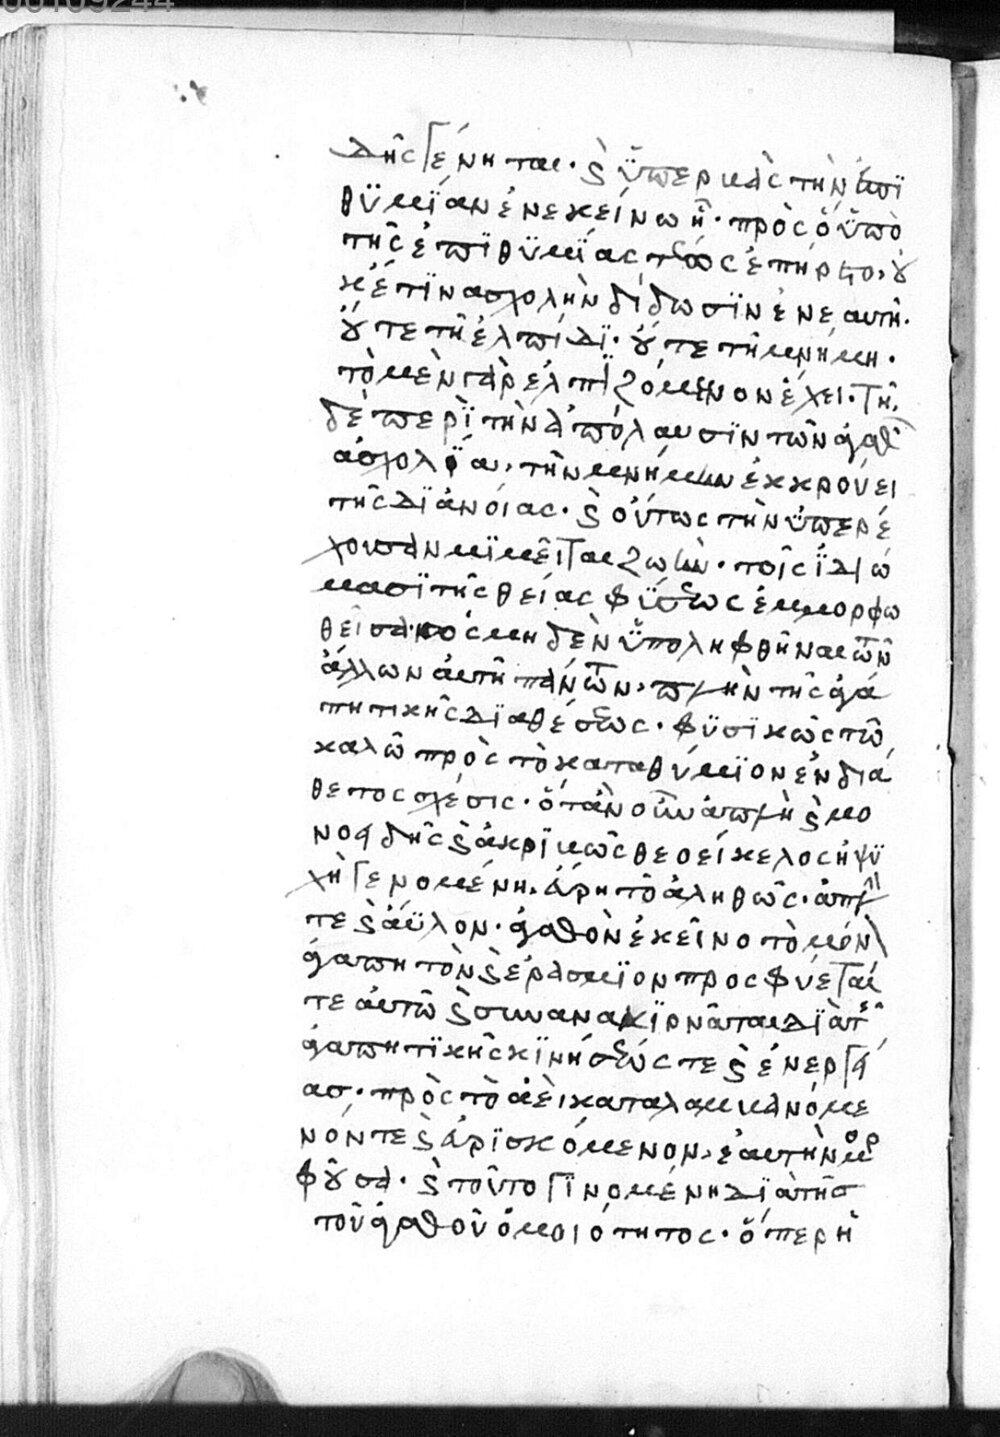 δὴς γένηται· ϗ ὑπερκὰς τὴν ἐπι
θυμίαν ἐν ἐκείνω ἦ· πρὸς ὃ ὑπὸ
τῆς ἐπιθυμίας τέως ἐπήρετο, ȣ
κέτιν ασχολὴν δίδωσιν ἐν ἐαυτῆ·
ȣτε τῆ ἐλπίδι· ȣτε τῆ μνήμη·
τὸ μὲν γὰρ ἐλπιζόμενον ἔχει· τῆ
δὲ περὶ τὴν ἀπόλαυσιν τῶν ἀγαθ
ἀσχολία, τὴν μνήμην ἐκκρούει
τῆς διἀνοίας· ϗ οὕτως τὴν ὑπερέ
χουσαν μιμεῖται ζωὴν· τοῖς ἰδιώ
μασι τῆς θείας φύσεως ἐμμορφω
θεῖσα· ὡς μηδὲν ὑποληφθῆναι τῶν
ἄλλων ἀυτῆ πάντων, πλὴν τῆς ἀγα
πητικῆς διαθέσεως· φυσικῶς τῶ
καλῶ πρὸς τὸ καταθύμιον ἐνδιά
θετος σχέσις· ὅτἀν οὖν ἁπλὴ ϗ μο
νοειδὴς ϗ ἀκριβῶς θεοείκελος ἡ ψυ
χὴ γενομένη, εὕρη τὸ ἀληθῶς· ἁπλ
τε ϗ ἄϋλον· ἀγαθὸν ἐκεῖνο τὸ μόν
ἀγαπητὸν ϗ ἐράσμιον προσφύεται
τε ἀυτῶ ϗ συνανακίρνᾶται διὰ τ
ἀγαπητικῆς κινήσεώς τε ϗ ἐνεργεί
ασ· πρὸς τὸ ἀεὶ καταλαμβανόμε
νόν τε ϗ εὑρισκόμενον, ἑαυτὴν μορ
φȣσα· ϗ τοῦτο γινομένη διὰ τῆσ
τοῦ ἀγαθοῦ ὁμοιότητος· ὅπερ ἡ